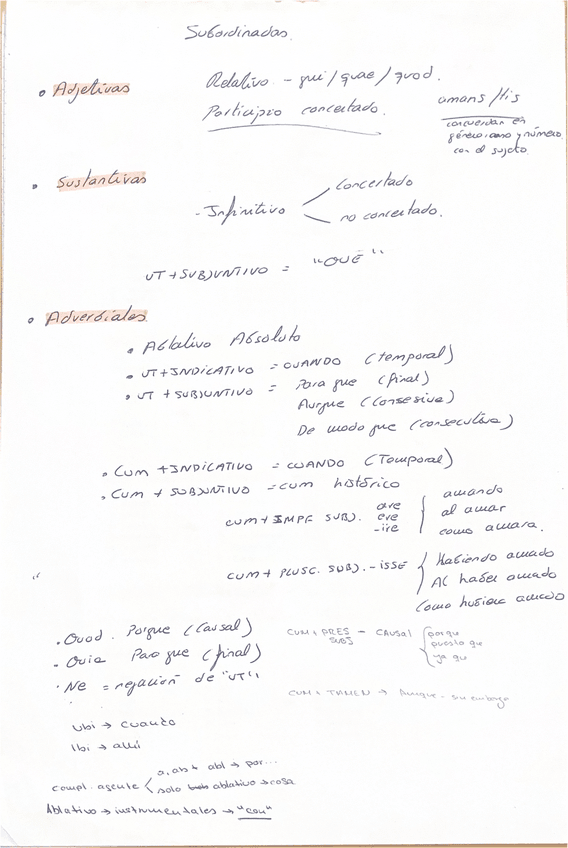 Subordinadas.
• Adjetivas
Relativo - qui/quae/quod.
Participio concertado.
amans/tis
concuerdan en
género, caso y número
con el sujeto.
• Sustantivas
- Infinitivo
concertado
no concertado.
UT + SUBJUNTIVO = "QUE"
• Adverbiales.
• Ablativo Absoluto
• UT + INDICATIVO = CUANDO (temporal)
• UT + SUBJUNTIVO = Para que (final)
Aunque (consesiva)
De modo que (consecutiva)
• Cum + INDICATIVO = CUANDO (Temporal)
• Cum + SUBJUNTIVO = cum histórico
CUM + IMPF SUBJ.
are
ere
-ire
amando
al amar
como amara.
CUM + PLUSC. SUBJ. - ISSE
Habiendo amado
Al haber amado
Como hubiera amado
• Quod. Porque (Causal)
• Quia Para que (final)
• Ne = negación de "UT"
CUM + PRES SUBJ - CAUSAL
porque
puesto que
ya que
CUM + TAMEN → Aunque - sin embargo
Ubi → cuando
Ibi → allí
compl. agente
a, ab + abl → por...
solo ablativo → cosa
Ablativo → instrumentales → "con"